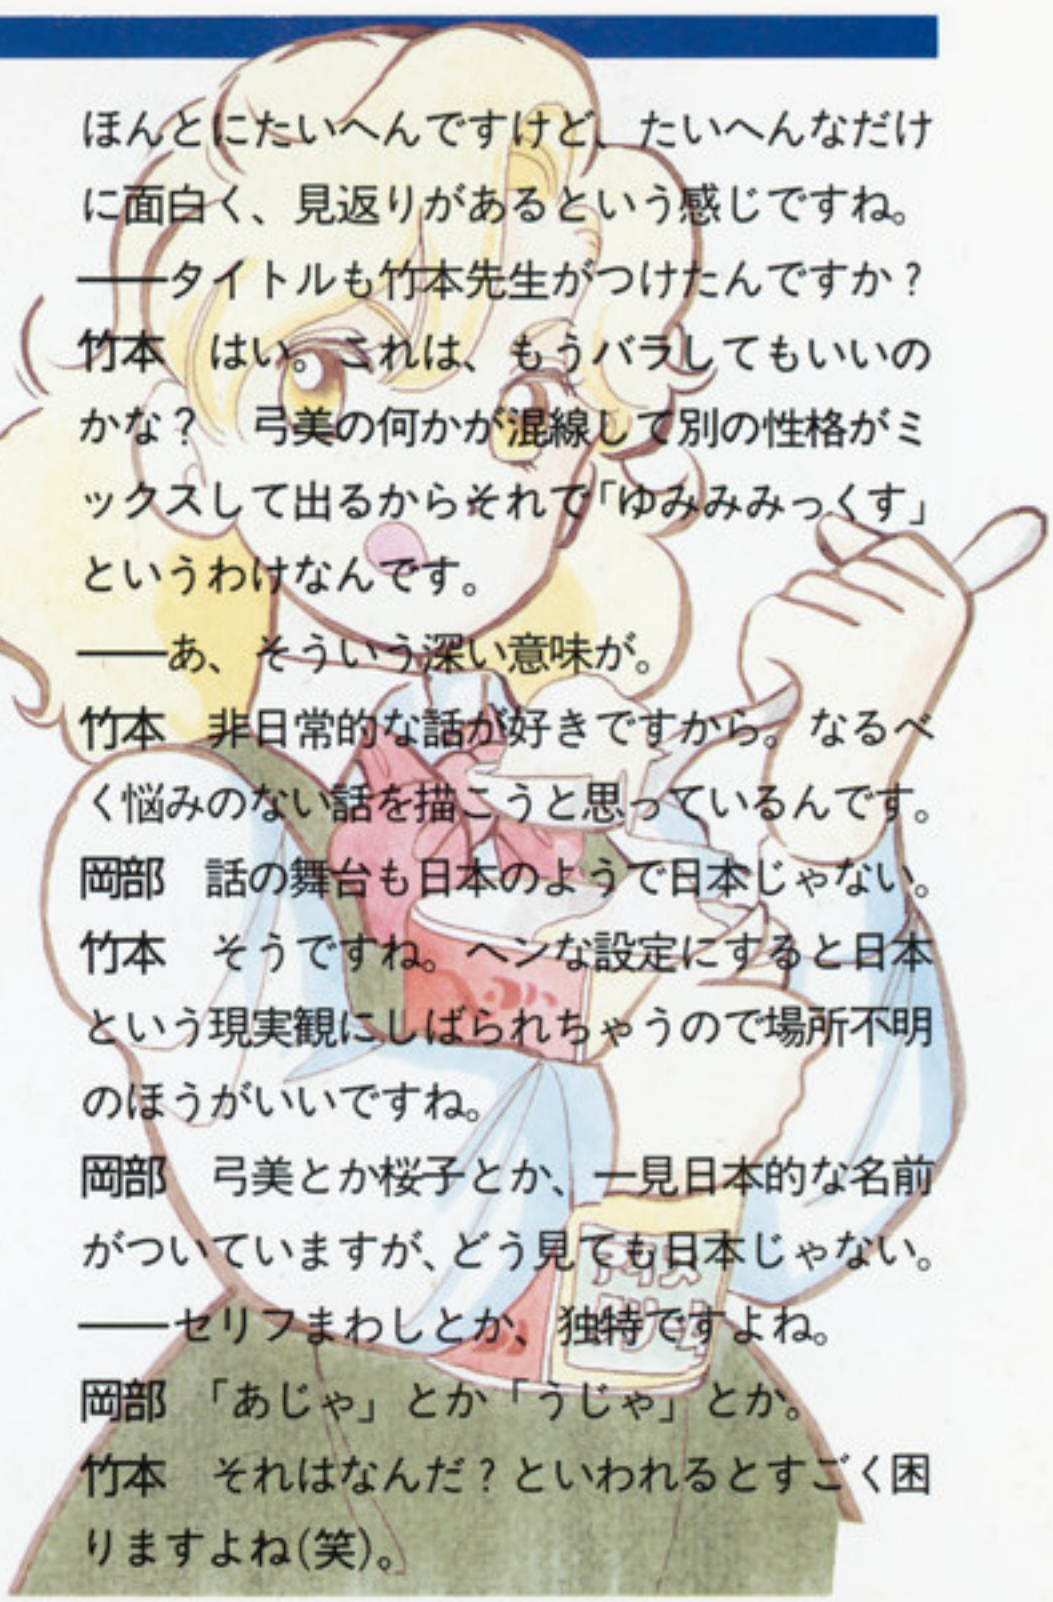 ほんとにたいへんですけど、たいへんなだけ
に面白く、見返りがあるという感じですね。
――タイトルも竹本先生がつけたんですか？
竹本　はい。これは、もうバラしてもいいの
かな？　弓美の何かが混線して別の性格がミ
ックスして出るからそれで「ゆみみみっくす」
というわけなんです。
――あ、そういう深い意味が。
竹本　非日常的な話が好きですから。なるべ
く悩みのない話を描こうと思っているんです。
岡部　話の舞台も日本のようで日本じゃない。
竹本　そうですね。ヘンな設定にすると日本
という現実観にしばられちゃうので場所不明
のほうがいいですね。
岡部　弓美とか桜子とか、一見日本的な名前
がついていますが、どう見ても日本じゃない。
――セリフまわしとか、独特ですよね。
岡部　「あじゃ」とか「うじゃ」とか。
竹本　それはなんだ？といわれるとすごく困
りますよね(笑)。